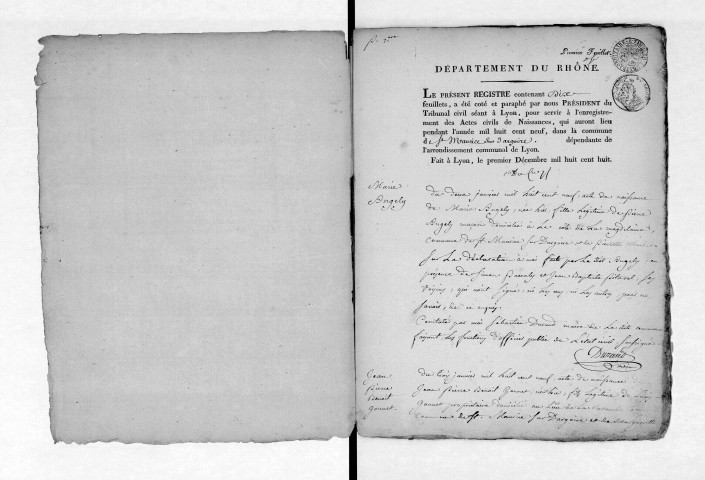 Premier Feuillet.
DÉPARTEMENT DU RHÔNE.
LE PRÉSENT REGISTRE contenant Dix
feuillets, a été coté et paraphé par nous PRÉSIDENT du
Tribunal civil séant à Lyon, pour servir à l'enregistre-
ment des Actes civils de Naissances, qui auront lieu
pendant l'année mil huit cent neuf, dans la commune
de St Maurice sur Dargoire. dépendante de
l'arrondissement communal de Lyon.
Fait à Lyon, le premier Décembre mil huit cent huit.
Marie
Bugely
du deux janvier mil huit cent neuf, acte de naissance
de Marie Bugely, née hier, fille légitime de pierre
Bugely maçon domicilié à la côte de la magdelaine,
commune de St Maurice sur Dargoire et de
sur la déclaration à moi faite par le dit Bugely, en
présence de et jean Baptiste ses
voisins, qui n'ont signé, ni les uns, ni les autres pour ne
savoir, de ce enquis.
Constaté par moi Sébastien Durand maire de la dite commune
faisant les fonctions d'officier public de l'état civil soussigné
Durand
maire
jean
pierre
Benoit
Gonnet.
du trois janvier mil huit cent neuf, acte de naissance
jean pierre Benoit Gonnet, né hier, fils légitime de
Gonnet propriétaire domicilié au lieu de la
commune de St Maurice sur Dargoire et de